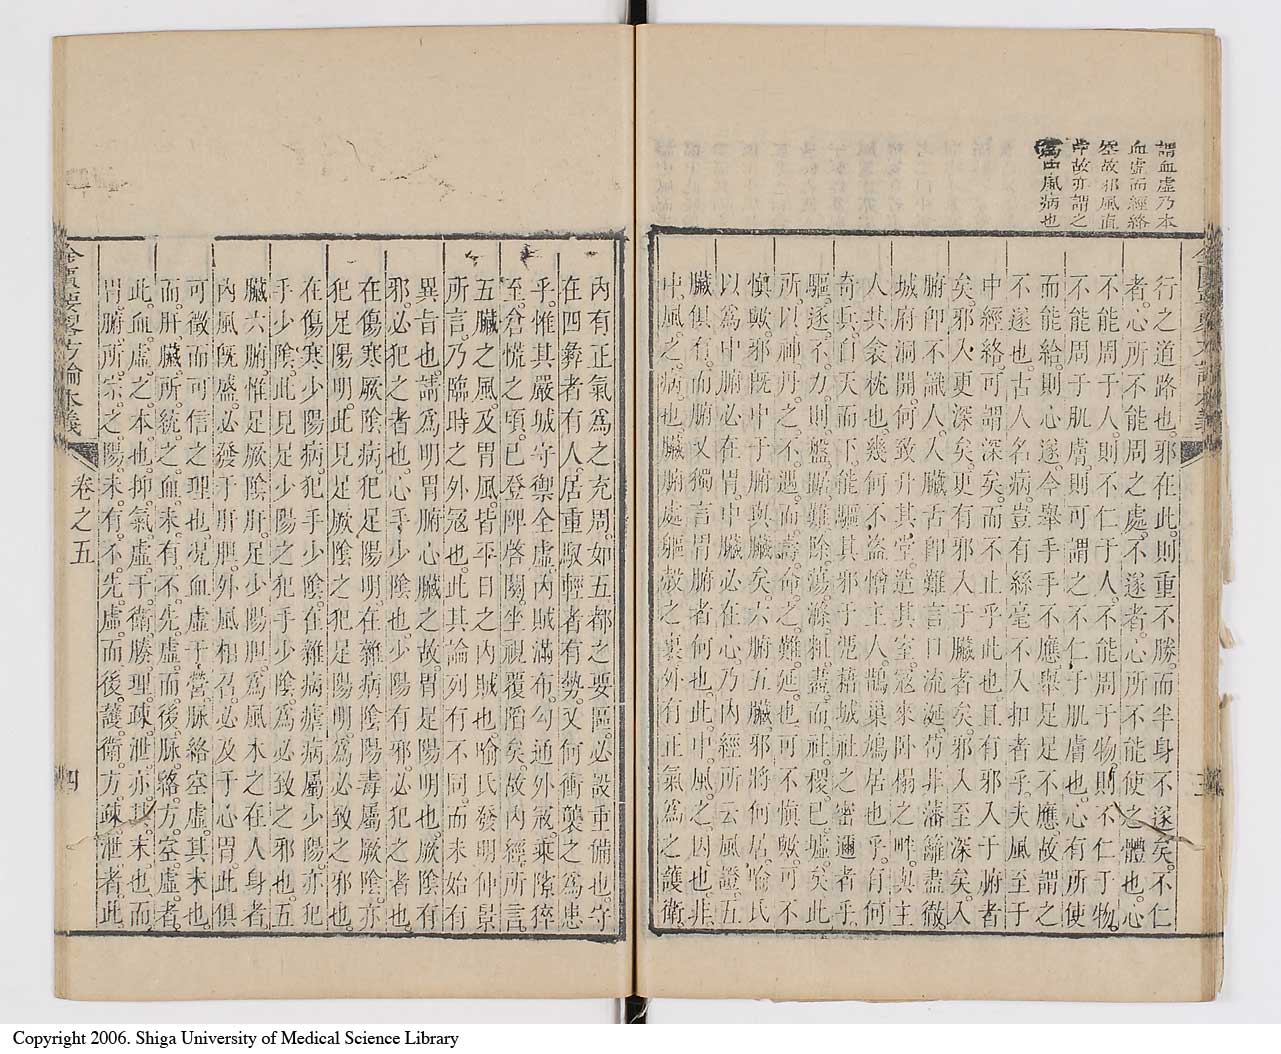 謂血虛乃本
血虛而經絡
空故邪風直
中故亦謂之
風病也
行之道路也。邪在此。則重不勝。而半身不遂矣。不仁
者。心所不能周之處。不遂者。心所不能使之體也。心
不能周于人。則不仁于人。不能周于物。則不仁于物。
不能周于肌膚。則可謂之不仁于肌膚也。心有所使
而能給。則心遂。今舉手手不應。舉足足不應。故謂之
不遂也。古人名病。豈有絲毫不入扣者乎。夫風至于
中經絡。可謂深矣。而不止乎此也。且有邪入于腑者
矣。邪入更深矣。更有邪入于臟者矣。邪入至深矣。入
腑卽不識人。入臟古卽難言口流涎。苟非藩籬盡徹。
城府洞開。何致升其堂。造其室。寇來卧榻之畔。與主
人共衾枕也。幾何不盜憎主人。鵲巢鳩居也乎。有何
奇兵。自天而下。能驅其邪于凭藉城社之密邇者乎。
驅逐不力。則盤踞難除。蕩滌粃盡。而社稷已墟矣。此
所以神丹之不遇。而壽命之難延也。可不慎歟。可不
慎歟。邪旣中于腑與臟矣。六腑五臟。邪將何居。喻氏
以爲中腑必在胃。中臟必在心。乃內經所云風證。五
臟俱有。而腑又獨言胃腑者何也。此中風之因也。非
中風之病也。臟腑處軀殼之裏。外有正氣爲之護衛。
三
內有正氣爲之充周。如五都之要區。必設重備也。守
在四彝者有人。居重馭輕者有勢。又何衝襲之爲患
乎。惟其嚴城守禦全虛。內賊滿布。勾通外寇。乘隙猝
至。倉慌之頃。已登陴啓關。坐視覆陷矣。故內經所言。
五臟之風。及胃風。皆平日之內賊也。喻氏發明仲景
所言。乃臨時之外寇也。此其論列有不同。而未始有
異旨也。請爲明胃腑心臟之故。胃足陽明也。厥陰有
邪。必犯之者也。心手少陰也。少陽有邪。必犯之者也
在傷寒厥陰病。犯足陽明。在雜病陰陽毒屬厥陰。亦
犯足陽明。此見足厥陰之犯足陽明。爲必致之邪也
在傷寒少陽病。犯手少陰。在雜病瘧病屬少陽。亦犯
手少陰。此見足少陽之犯手少陰。爲必致之邪也。五
臟六腑。惟足厥陰肝。足少陽胆。爲風木之在人身者。
內風旣盛。必發于肝胆。外風相召。必及于心胃。此俱
可徵而可信之理也。况血虛于營。脉絡空虛。其末也。
而肝臟所統之血。未有不先虛。而後脉絡方空虛者。
此血虛之本也。抑氣虛于衛。腠理疎泄。亦其末也。而
胃腑所宗之陽。未有不先虛。而後護衛方疎泄者。此
金匱要畧方論本義
卷之五
四
Copyright 2006. Shiga University of Medical Science Library